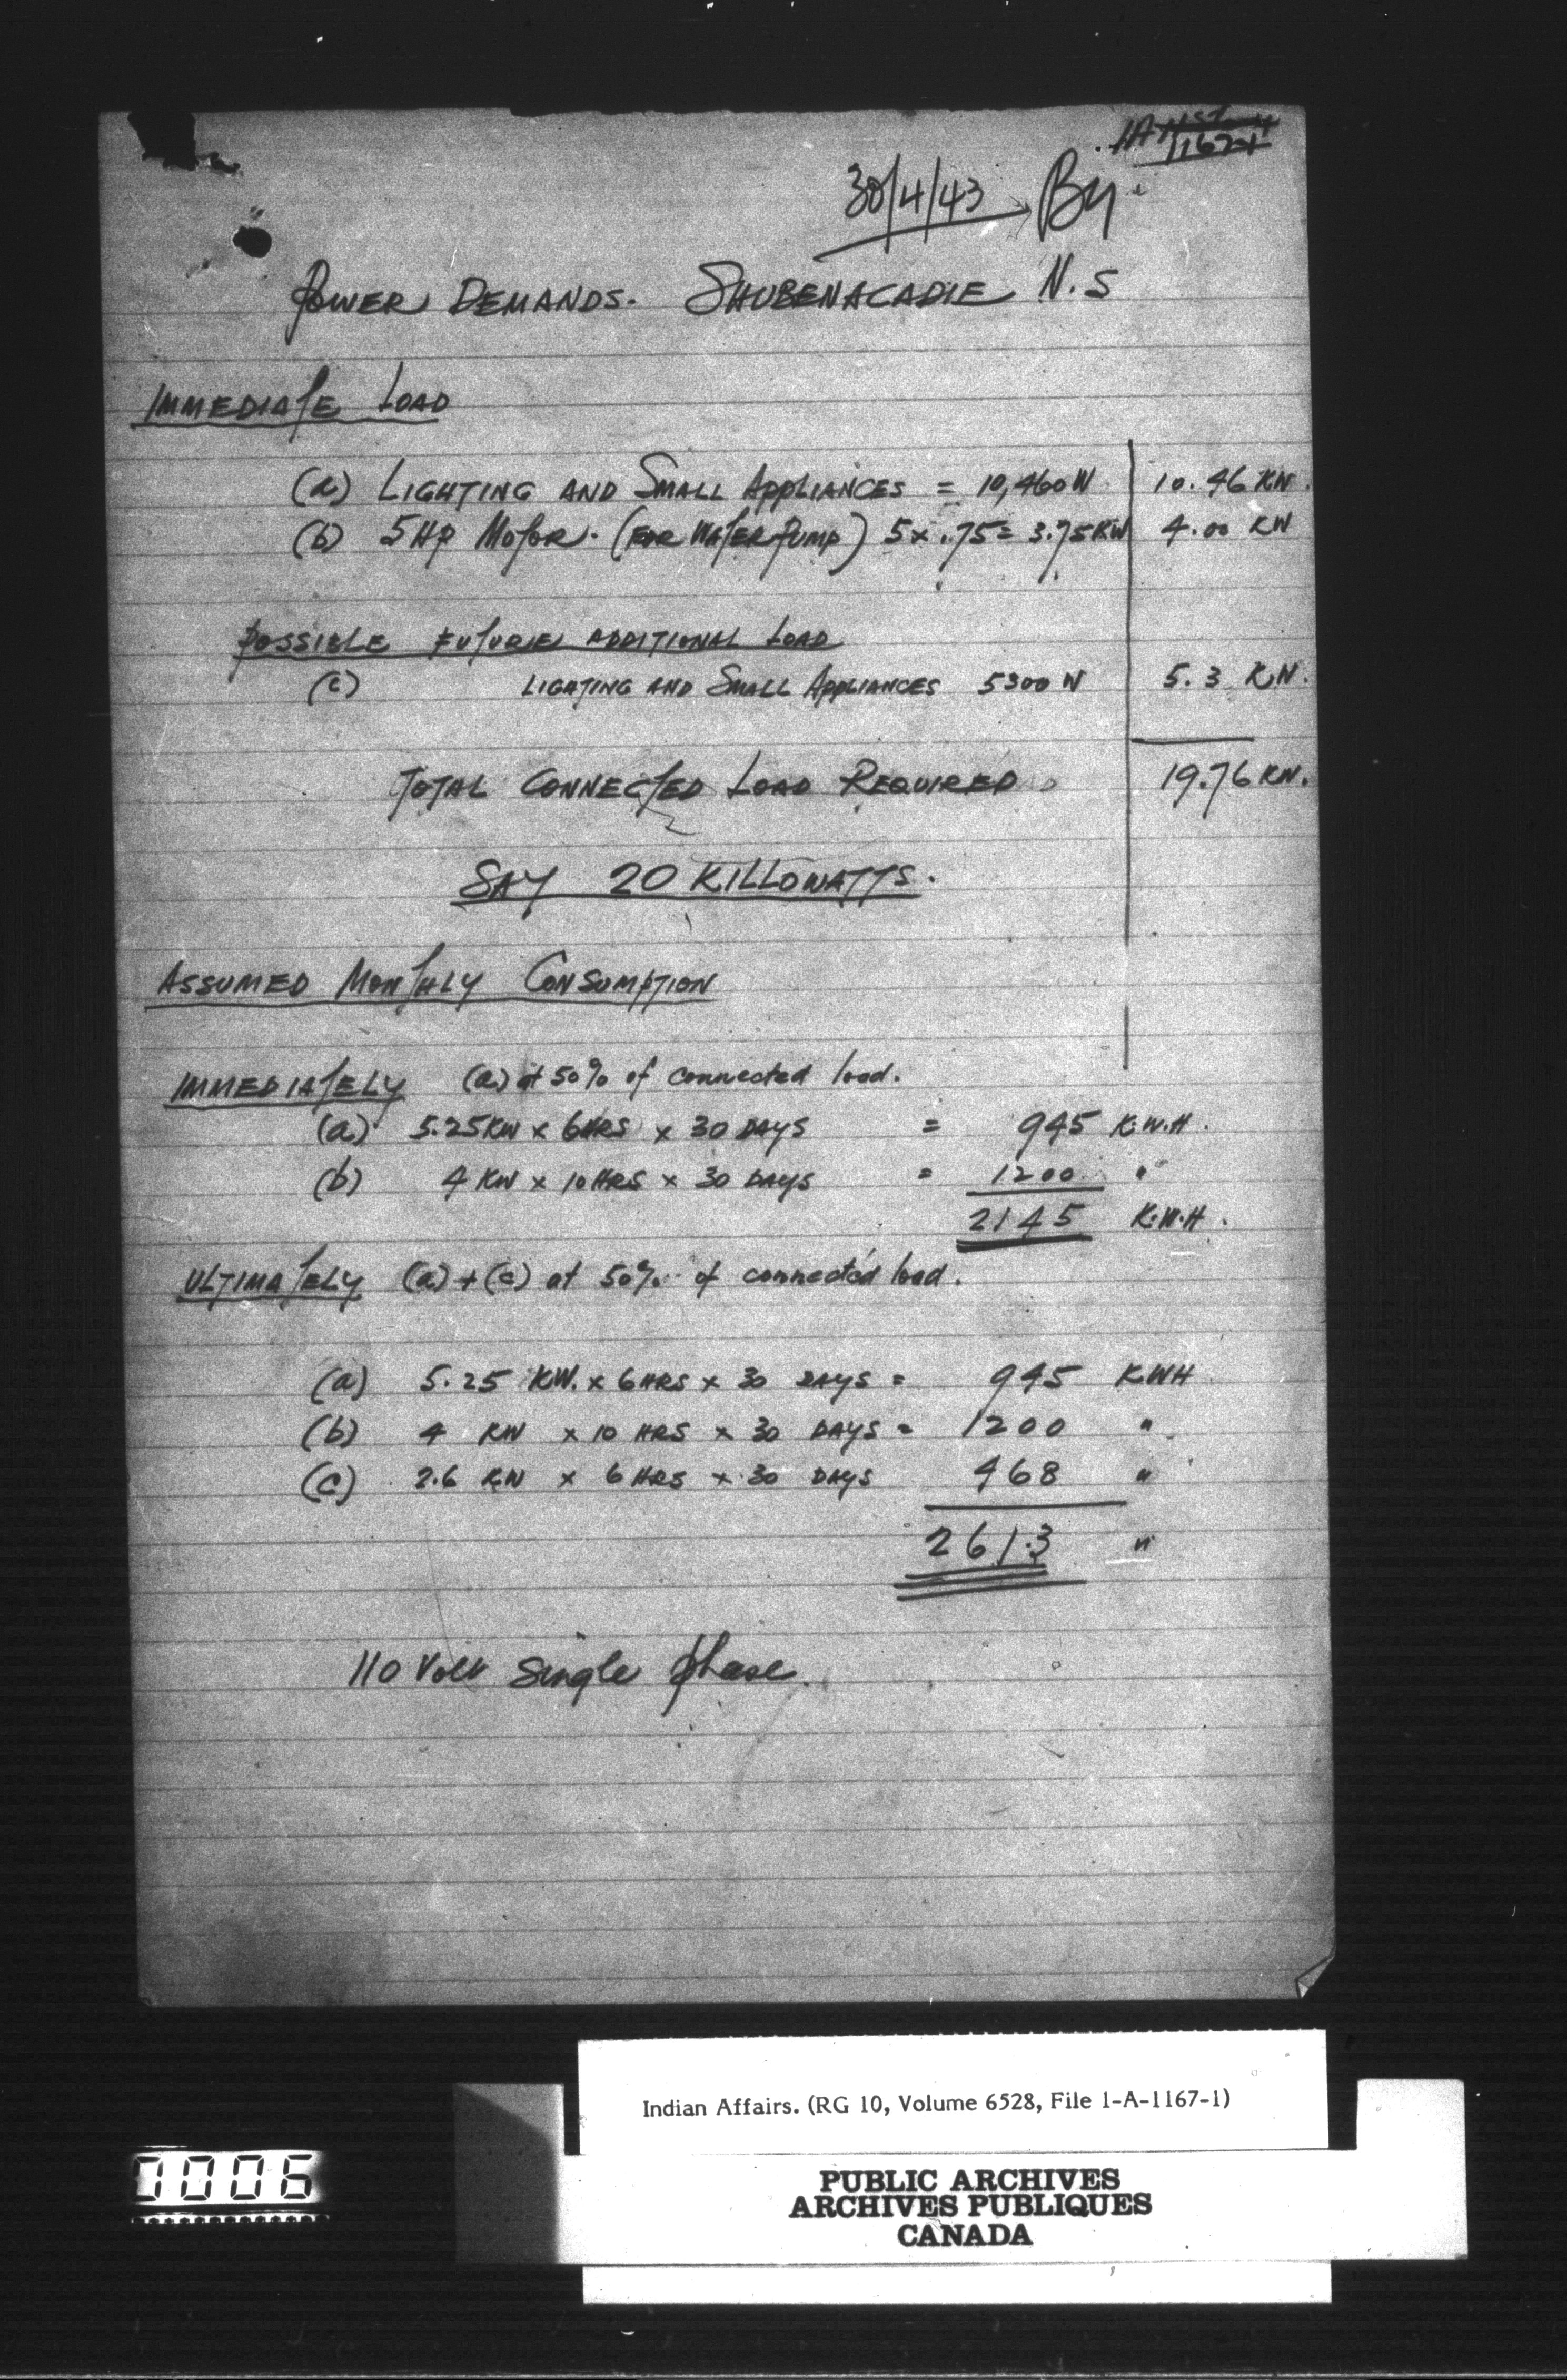 1167-1
30/4/43 → By
POWER DEMANDS. SHUBENACADIE N.S
IMMEDIATE LOAD
(a) LIGHTING AND SMALL APPLIANCES = 10,460 W 10.46 KW.
(b) 5 HP MOTOR. (FOR WATER PUMP) 5 x .75 = 3.75 KW 4.00 KW
POSSIBLE FUTURE ADDITIONAL LOAD
(c) LIGHTING AND SMALL APPLIANCES 5300 W 5.3 KW.
TOTAL CONNECTED LOAD REQUIRED 19.76 KW.
SAY 20 KILLOWATTS.
ASSUMED MONTHLY CONSUMPTION
IMMEDIATELY (a) at 50% of connected load.
(a) 5.25 KW x 6 HRS x 30 DAYS = 945 K.W.H.
(b) 4 KW x 10 HRS x 30 DAYS = 1200 "
2145 K.W.H.
ULTIMATELY (a) + (c) at 50% of connected load.
(a) 5.25 KW. x 6 HRS x 30 DAYS = 945 KWH
(b) 4 KW x 10 HRS x 30 DAYS = 1200 "
(c) 2.6 KW x 6 HRS x 30 DAYS 468 "
2613 "
110 Volt Single phase.
Indian Affairs. (RG 10, Volume 6528, File 1-A-1167-1)
PUBLIC ARCHIVES
ARCHIVES PUBLIQUES
CANADA
0006